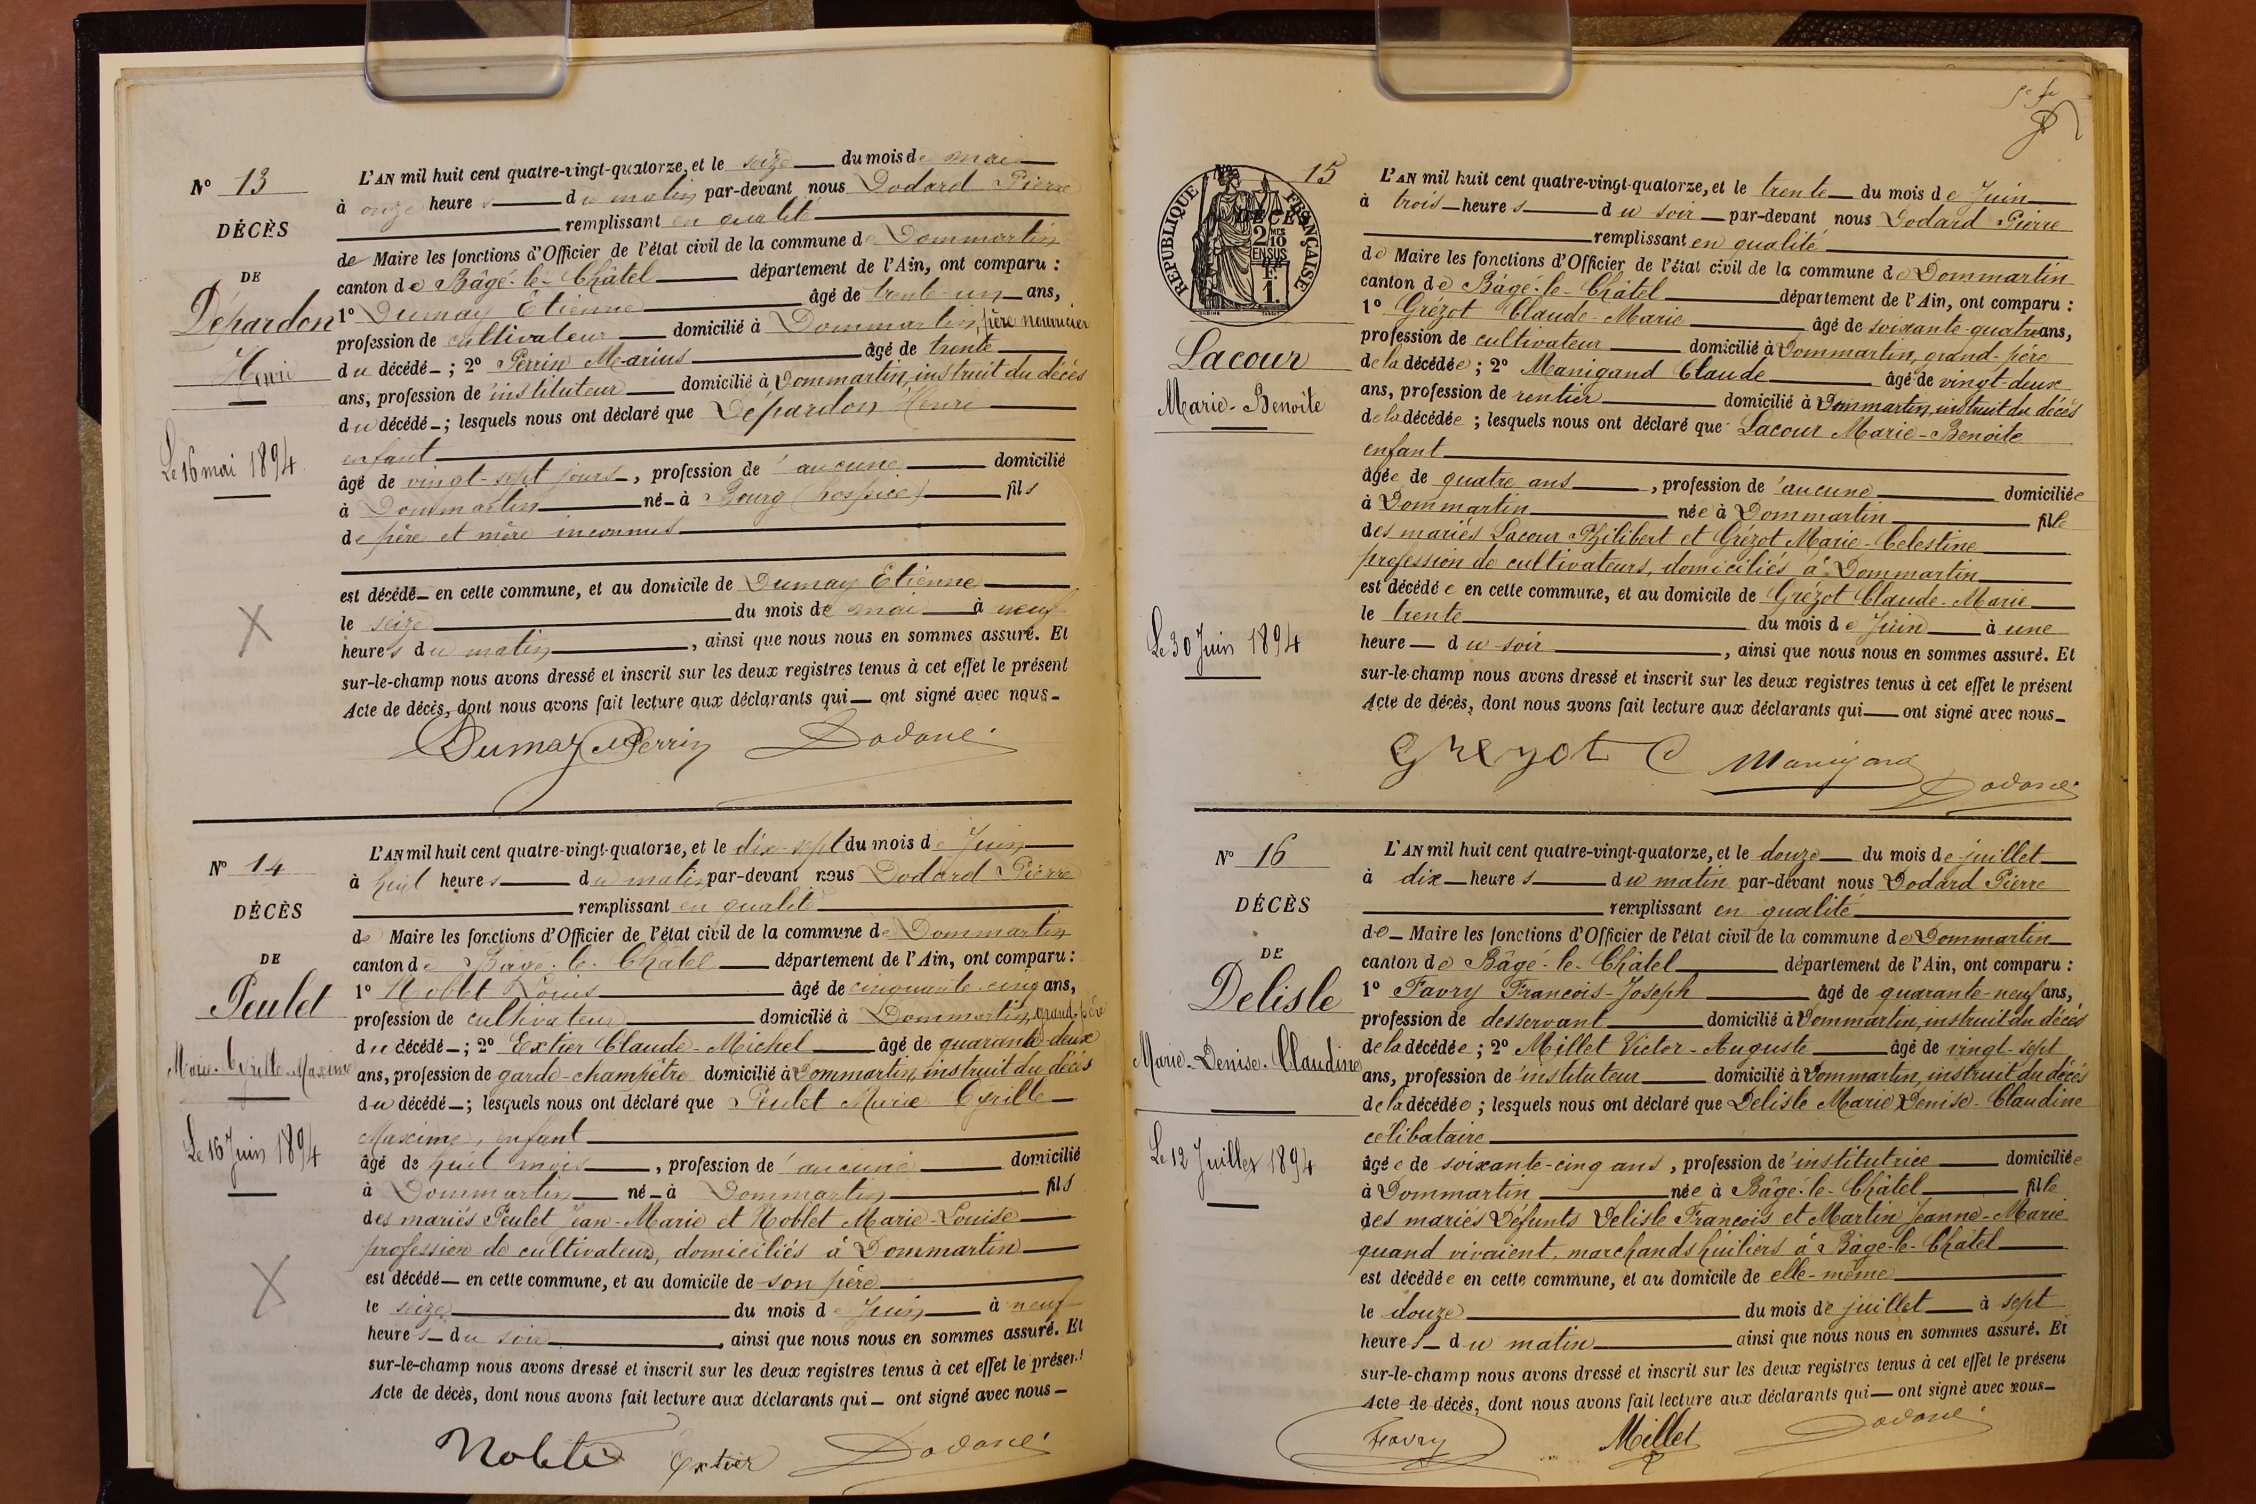 N° 13
DÉCÈS
DE
Dépardon
Henri
Le 16 mai 1894
L'AN mil huit cent quatre-vingt-quatorze, et le seize du mois de mai
à onze heures du matin par-devant nous Dodard Pierre
remplissant en qualité
de Maire les fonctions d'Officier de l'état civil de la commune de Dommartin
canton de Bâgé-le-Châtel département de l'Ain, ont comparu :
1° Dumay Etienne âgé de trente-un ans,
profession de cultivateur domicilié à Dommartin, père nourricier
du décédé ; 2° Perrin Marius âgé de trente
ans, profession de instituteur domicilié à Dommartin, instruit du décès
du décédé ; lesquels nous ont déclaré que Dépardon Henri
enfant
âgé de vingt-sept jours, profession de aucune domicilié
à Dommartin né à Bourg (hospice) fils
de père et mère inconnus
est décédé en cette commune, et au domicile de Dumay Etienne
le seize du mois de mai à neuf
heures du matin, ainsi que nous nous en sommes assuré. Et
sur-le-champ nous avons dressé et inscrit sur les deux registres tenus à cet effet le présent
Acte de décès, dont nous avons fait lecture aux déclarants qui ont signé avec nous
Dumay Perrin Dodard
N° 14
DÉCÈS
DE
Peulet
Marie-Cyrille-Maxime
Le 16 Juin 1894
L'AN mil huit cent quatre-vingt-quatorze, et le dix-sept du mois de Juin
à huit heures du matin par-devant nous Dodard Pierre
remplissant en qualité
de Maire les fonctions d'Officier de l'état civil de la commune de Dommartin
canton de Bâgé-le-Châtel département de l'Ain, ont comparu :
1° Noblet Louis âgé de cinquante-cinq ans,
profession de cultivateur domicilié à Dommartin, grand-père
du décédé ; 2° Extier Claude-Michel âgé de quarante-deux
ans, profession de garde-champêtre domicilié à Dommartin, instruit du décès
du décédé ; lesquels nous ont déclaré que Peulet Marie Cyrille
Maxime, enfant
âgé de huit mois, profession de aucune domicilié
à Dommartin né à Dommartin fils
des mariés Peulet Jean-Marie et Noblet Marie-Louise
profession de cultivateurs, domiciliés à Dommartin
est décédé en cette commune, et au domicile de son père
le seize du mois de Juin à neuf
heures du soir, ainsi que nous nous en sommes assuré. Et
sur-le-champ nous avons dressé et inscrit sur les deux registres tenus à cet effet le présent
Acte de décès, dont nous avons fait lecture aux déclarants qui ont signé avec nous
Noblet Extier Dodard
N° 15
DÉCÈS
RÉPUBLIQUE FRANÇAISE
2 MES
10
EN SUS
1 F.
Lacour
Marie-Benoite
Le 30 Juin 1894
L'AN mil huit cent quatre-vingt-quatorze, et le trente du mois de Juin
à trois heures du soir par-devant nous Dodard Pierre
remplissant en qualité
de Maire les fonctions d'Officier de l'état civil de la commune de Dommartin
canton de Bâgé-le-Châtel département de l'Ain, ont comparu :
1° Grézot Claude-Marie âgé de soixante-quatre ans,
profession de cultivateur domicilié à Dommartin, grand-père
de la décédée ; 2° Manigand Claude âgé de vingt-deux
ans, profession de rentier domicilié à Dommartin, instruit du décès
de la décédée ; lesquels nous ont déclaré que Lacour Marie-Benoite
enfant
âgée de quatre ans, profession de aucune domiciliée
à Dommartin née à Dommartin fille
des mariés Lacour Philibert et Grézot Marie-Celestine
profession de cultivateurs, domiciliés à Dommartin
est décédée en cette commune, et au domicile de Grézot Claude-Marie
le trente du mois de Juin à une
heure du soir, ainsi que nous nous en sommes assuré. Et
sur-le-champ nous avons dressé et inscrit sur les deux registres tenus à cet effet le présent
Acte de décès, dont nous avons fait lecture aux déclarants qui ont signé avec nous
Grezot C Manigand Dodard
N° 16
DÉCÈS
DE
Delisle
Marie-Denise-Claudine
Le 12 Juillet 1894
L'AN mil huit cent quatre-vingt-quatorze, et le douze du mois de juillet
à dix heures du matin par-devant nous Dodard Pierre
remplissant en qualité
de Maire les fonctions d'Officier de l'état civil de la commune de Dommartin
canton de Bâgé-le-Châtel département de l'Ain, ont comparu :
1° Favry François-Joseph âgé de quarante-neuf ans,
profession de desservant domicilié à Dommartin, instruit du décès
de la décédée ; 2° Millet Victor-Auguste âgé de vingt-sept
ans, profession de instituteur domicilié à Dommartin, instruit du décès
de la décédée ; lesquels nous ont déclaré que Delisle Marie Denise-Claudine
célibataire
âgée de soixante-cinq ans, profession de institutrice domiciliée
à Dommartin née à Bâgé-le-Châtel fille
des mariés Défunts Delisle François et Martin Jeanne-Marie
quand vivaient, marchands huiliers à Bâgé-le-Châtel
est décédée en cette commune, et au domicile de elle-même
le douze du mois de juillet à sept
heures du matin ainsi que nous nous en sommes assuré. Et
sur-le-champ nous avons dressé et inscrit sur les deux registres tenus à cet effet le présent
Acte de décès, dont nous avons fait lecture aux déclarants qui ont signé avec nous
Favry Millet Dodard